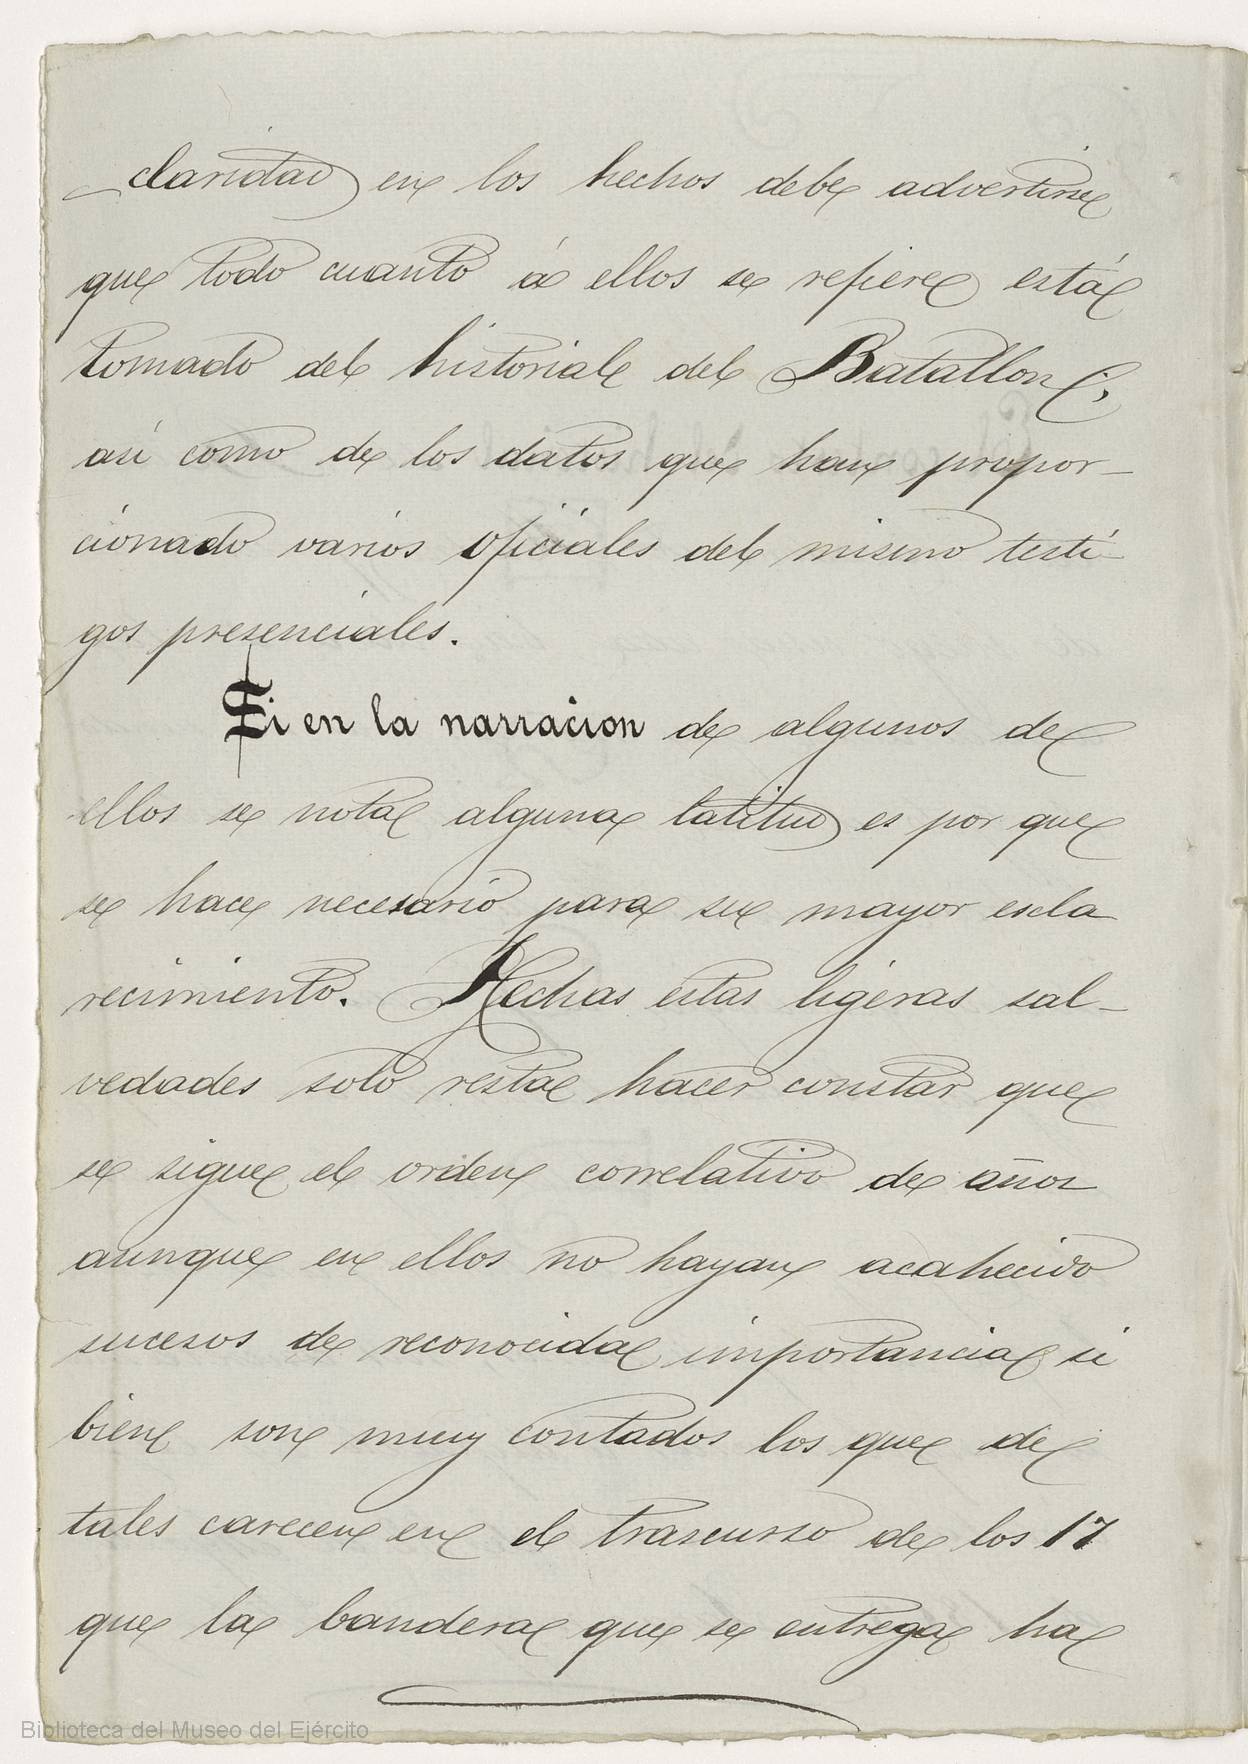 claridad en los hechos debe advertirse
que todo cuanto á ellos se refiere está
tomado del historial del Batallon,
asi como de los datos que han propor-
cionado varios oficiales del mismo testi-
gos presenciales.
Si en la narracion de algunos de
ellos se nota alguna latitud es por que
se hace necesario para su mayor escla
recimiento. Hechas estas ligeras sal-
vedades solo resta hacer constar que
se sigue el orden correlativo de años
aunque en ellos no hayan acahecido
sucesos de reconocida importancia si
bien son muy contados los que de
tales carecen en el trascurso de los 17
que la bandera que se entrega ha
Biblioteca del Museo del Ejército